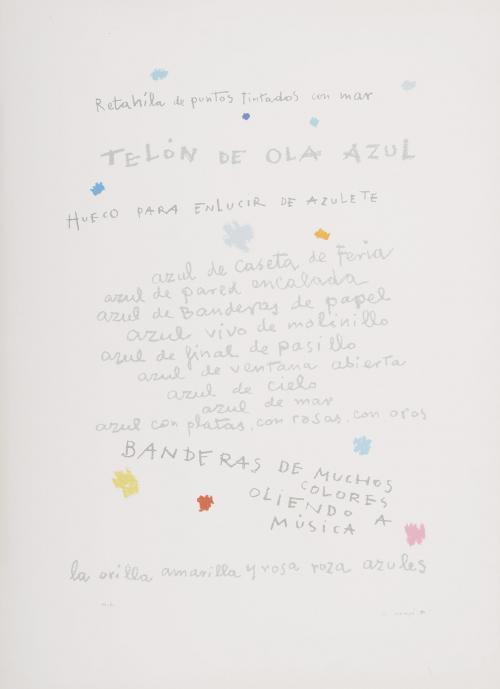 Retahíla de puntos tintados con mar
TELÓN DE OLA AZUL
HUECO PARA ENLUCIR DE AZULETE
azul de caseta de Feria
azul de pared encalada
azul de Banderas de papel
azul vivo de molinillo
azul de final de pasillo
azul de ventana abierta
azul de cielo
azul de mar
azul con platas, con rosas, con oros
BANDERAS DE MUCHOS
COLORES
OLIENDO A
MÚSICA
la orilla amarilla y rosa roza azules